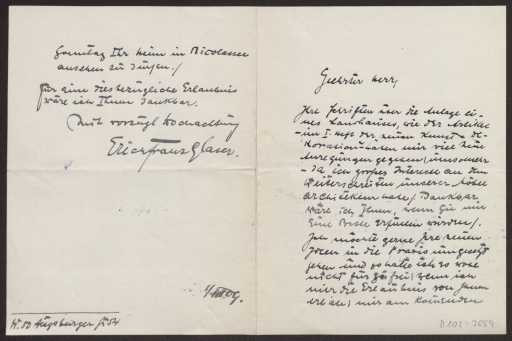 Geehrter Herr,
Ihre Schriften über die Anlage ei-
nes Landhauses, wie der Artikel
im 1. Heft der neuen Kunst & De-
koration haben mir viel neue
Anregungen gegeben, umsomehr
da ich großes Interesse an dem
Weiterschreiten unserer
Architektur habe. Dankbar
wäre ich Ihnen, wenn Sie mir
eine Bitte erfüllen würden.
Ich möchte gerne Ihre neuen
Ideen in die Praxis umgesetzt
sehen und so halte ich es wohl
nicht für zu frei, wenn ich
mir die Erlaubnis von Ihnen
erbitte, mir am kommenden
Sonntag Ihr Heim in Nicolassee
ansehen zu dürfen.
Für eine diesbezügliche Erlaubnis
wäre ich Ihnen dankbar.
Mit vorzügl. Hochachtung
Erich Franz Glaser.
W. 50 Augsburger
D 102-2654